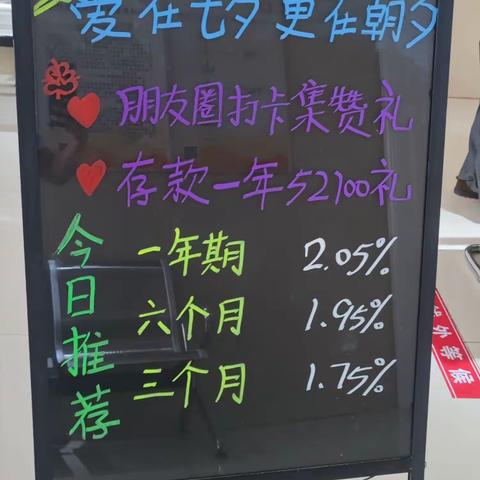 爱在七夕 更在朝夕
朋友圈打卡集赞礼
存款一年52100礼
今日推荐
一年期 2.05%
六个月 1.95%
三个月 1.75%
外等候